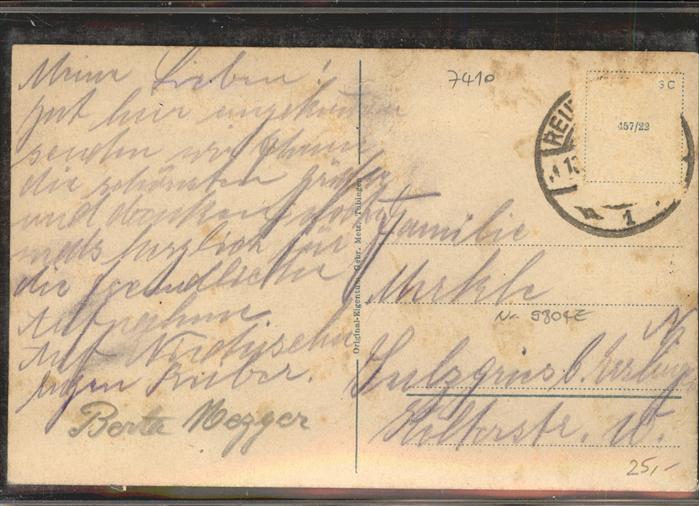 Meine Lieben!
gut hier angekommen
senden wir Ihnen
die schönsten Grüße
und danken noch
mals herzlich für
die freundliche
Aufnahme
Auf Wiedersehn
Berta Mezger
Original-Eigentum Gebr. Metz, Tübingen
7410
3 C
457/22
REU
1
Familie
Merkle
No 5804E
Sulzgries b. Essling
25,-